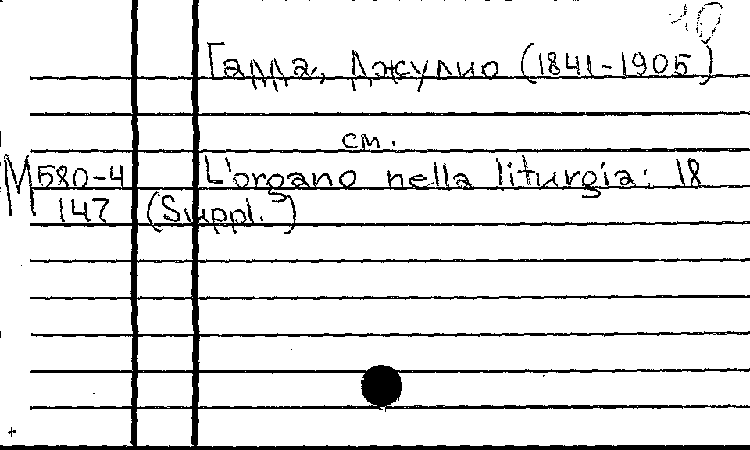 10
Гадда, Джулио (1841-1905)
см.
М580-4 L'organo nella liturgia: 18
147 (Suppl.)